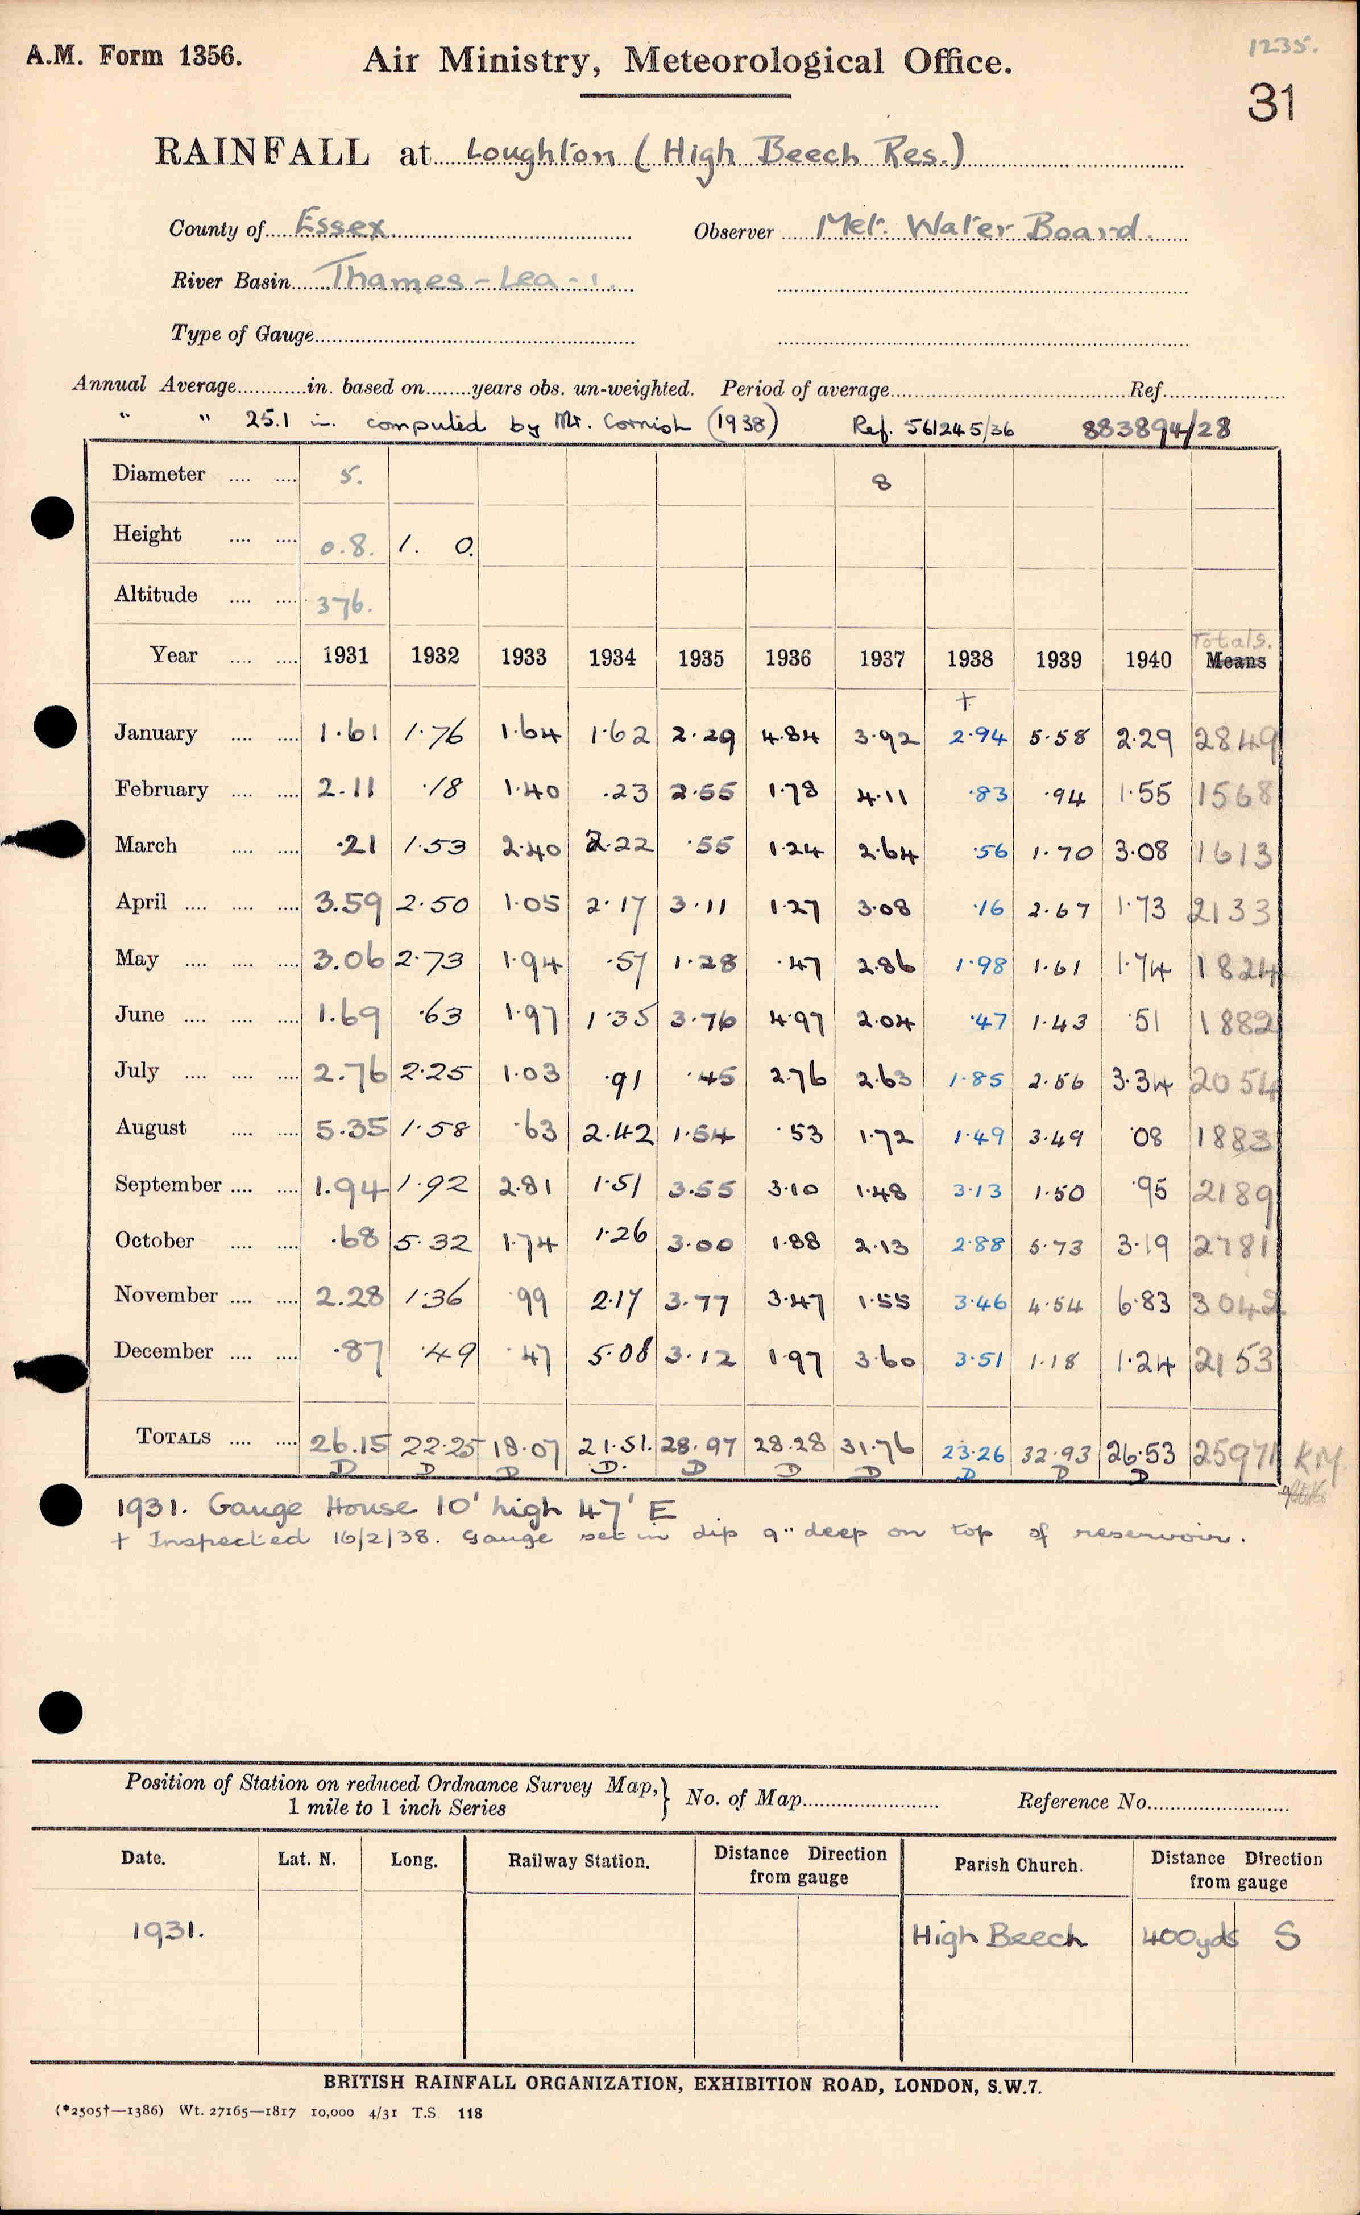 A.M. Form 1356.
Air Ministry, Meteorological Office.
1235.
31
RAINFALL at Loughton (High Beech Res.)
County of Essex. Observer Met. Water Board.
River Basin Thames - Lea - 1.
Type of Gauge
Annual Average in. based on years obs. un-weighted. Period of average Ref.
" " 25.1 in. computed by Mr. Cornish (1938) Ref. 561245/36 883894/28
Diameter 5. 8
Height 0.8. 1. 0.
Altitude 376.
Totals.
Year 1931 1932 1933 1934 1935 1936 1937 1938 1939 1940 Means
+
January 1.61 1.76 1.64 1.62 2.29 4.84 3.92 2.94 5.58 2.29 2849
February 2.11 .18 1.40 .23 2.55 1.78 4.11 .83 .94 1.55 1568
March .21 1.53 2.40 2.22 .55 1.24 2.64 .56 1.70 3.08 1613
April 3.59 2.50 1.05 2.17 3.11 1.27 3.08 .16 2.67 1.73 2133
May 3.06 2.73 1.94 .57 1.28 .47 2.86 1.98 1.61 1.74 1824
June 1.69 .63 1.97 1.35 3.76 4.97 2.04 .47 1.43 .51 1882
July 2.76 2.25 1.03 .91 .45 2.76 2.63 1.85 2.56 3.34 2054
August 5.35 1.58 .63 2.42 1.54 .53 1.72 1.49 3.49 .08 1883
September 1.94 1.92 2.81 1.51 3.55 3.10 1.48 3.13 1.50 .95 2189
October .68 5.32 1.74 1.26 3.00 1.88 2.13 2.88 5.73 3.19 2781
November 2.28 1.36 .99 2.17 3.77 3.47 1.55 3.46 4.54 6.83 3042
December .87 .49 .47 5.08 3.12 1.97 3.60 3.51 1.18 1.24 2153
TOTALS 26.15 22.25 18.07 21.51. 28.97 28.28 31.76 23.26 32.93 26.53 25971 KM
D D D D. D D D D D D
1931. Gauge House 10' high 47' E
+ Inspected 16/2/38. Gauge set in dip 9" deep on top of reservoir.
Position of Station on reduced Ordnance Survey Map, } No. of Map Reference No.
1 mile to 1 inch Series
Date. Lat. N. Long. Railway Station. Distance Direction from gauge Parish Church. Distance Direction from gauge
1931. High Beech 400yds S
BRITISH RAINFALL ORGANIZATION, EXHIBITION ROAD, LONDON, S.W.7.
(*2505†—1386) Wt. 27165—1817 10,000 4/31 T.S 118